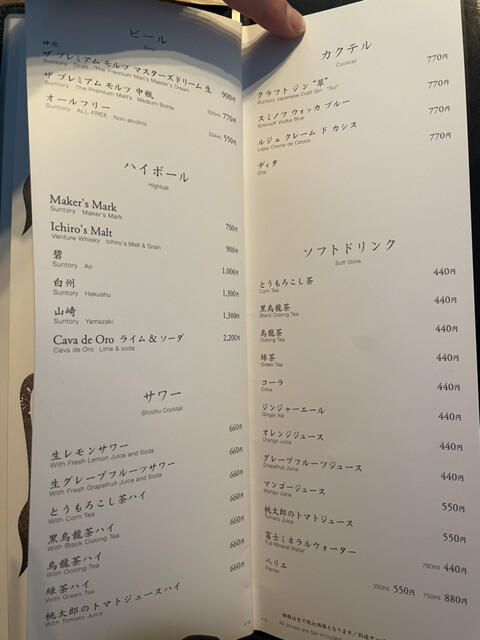 ビール
Beer
神泡
ザ プレミアム モルツ マスターズドリーム 生 900円
Suntory Draft "The Premium Malt's Master's Dream
ザ プレミアム モルツ 中瓶 500ml 770円
Suntory "The Premium Malt's" Medium Bottle
オールフリー 334ml 550円
Suntory ALL-FREE Non-alcohol
ハイボール
Highball
Maker's Mark 700円
Suntory Maker's Mark
Ichiro's Malt 900円
Venture Whisky Ichiro's Malt & Grain
碧 1,000円
Suntory Ao
白州 1,300円
Suntory Hakushu
山崎 1,300円
Suntory Yamazaki
Cava de Oro ライム & ソーダ 2,200円
Cava de Oro Lime & soda
サワー
Shochu Cocktail
生レモンサワー 660円
With Fresh Lemon Juice and Soda
生グレープフルーツサワー 660円
With Fresh Grapefruit Juice and Soda
とうもろこし茶ハイ 660円
With Corn Tea
黒烏龍茶ハイ 660円
With Black Oolong Tea
烏龍茶ハイ 660円
With Oolong Tea
緑茶ハイ 660円
With Green Tea
桃太郎のトマトジュースハイ 660円
With Tomato Juice
カクテル
Cocktail
クラフト ジン "翠" 770円
Suntory Japanese Craft Gin "Sui"
スミノフ ウォッカ ブルー 770円
Smirnoff Vodka Blue
ルジェ クレーム ド カシス 770円
Lejay Creme de Cassis
ディタ 770円
Dita
ソフトドリンク
Soft Drink
とうもろこし茶 440円
Corn Tea
黒烏龍茶 440円
Black Oolong Tea
烏龍茶 440円
Oolong Tea
緑茶 440円
Green Tea
コーラ 440円
Coke
ジンジャーエール 440円
Ginger Ale
オレンジジュース 440円
Orange Juice
グレープフルーツジュース 440円
Grapefruit Juice
マンゴージュース 440円
Mango Juice
桃太郎のトマトジュース 550円
Tomato Juice
富士ミネラルウォーター 550円
Fuji Mineral Water
780ml 440円
ペリエ 330ml 550円 750ml 880円
Perrier
価格は全て税込価格となります／料理
All prices are tax included